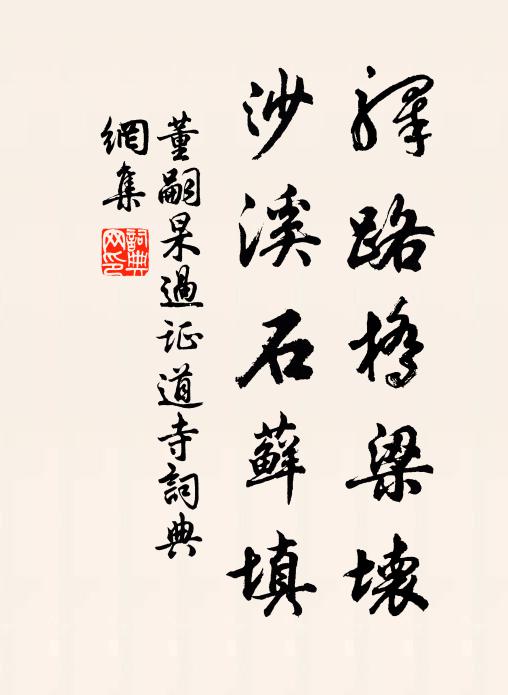 驛路橋梁壞
沙溪石蘚填
董嗣杲過证道寺詞典
網集
詞典網印